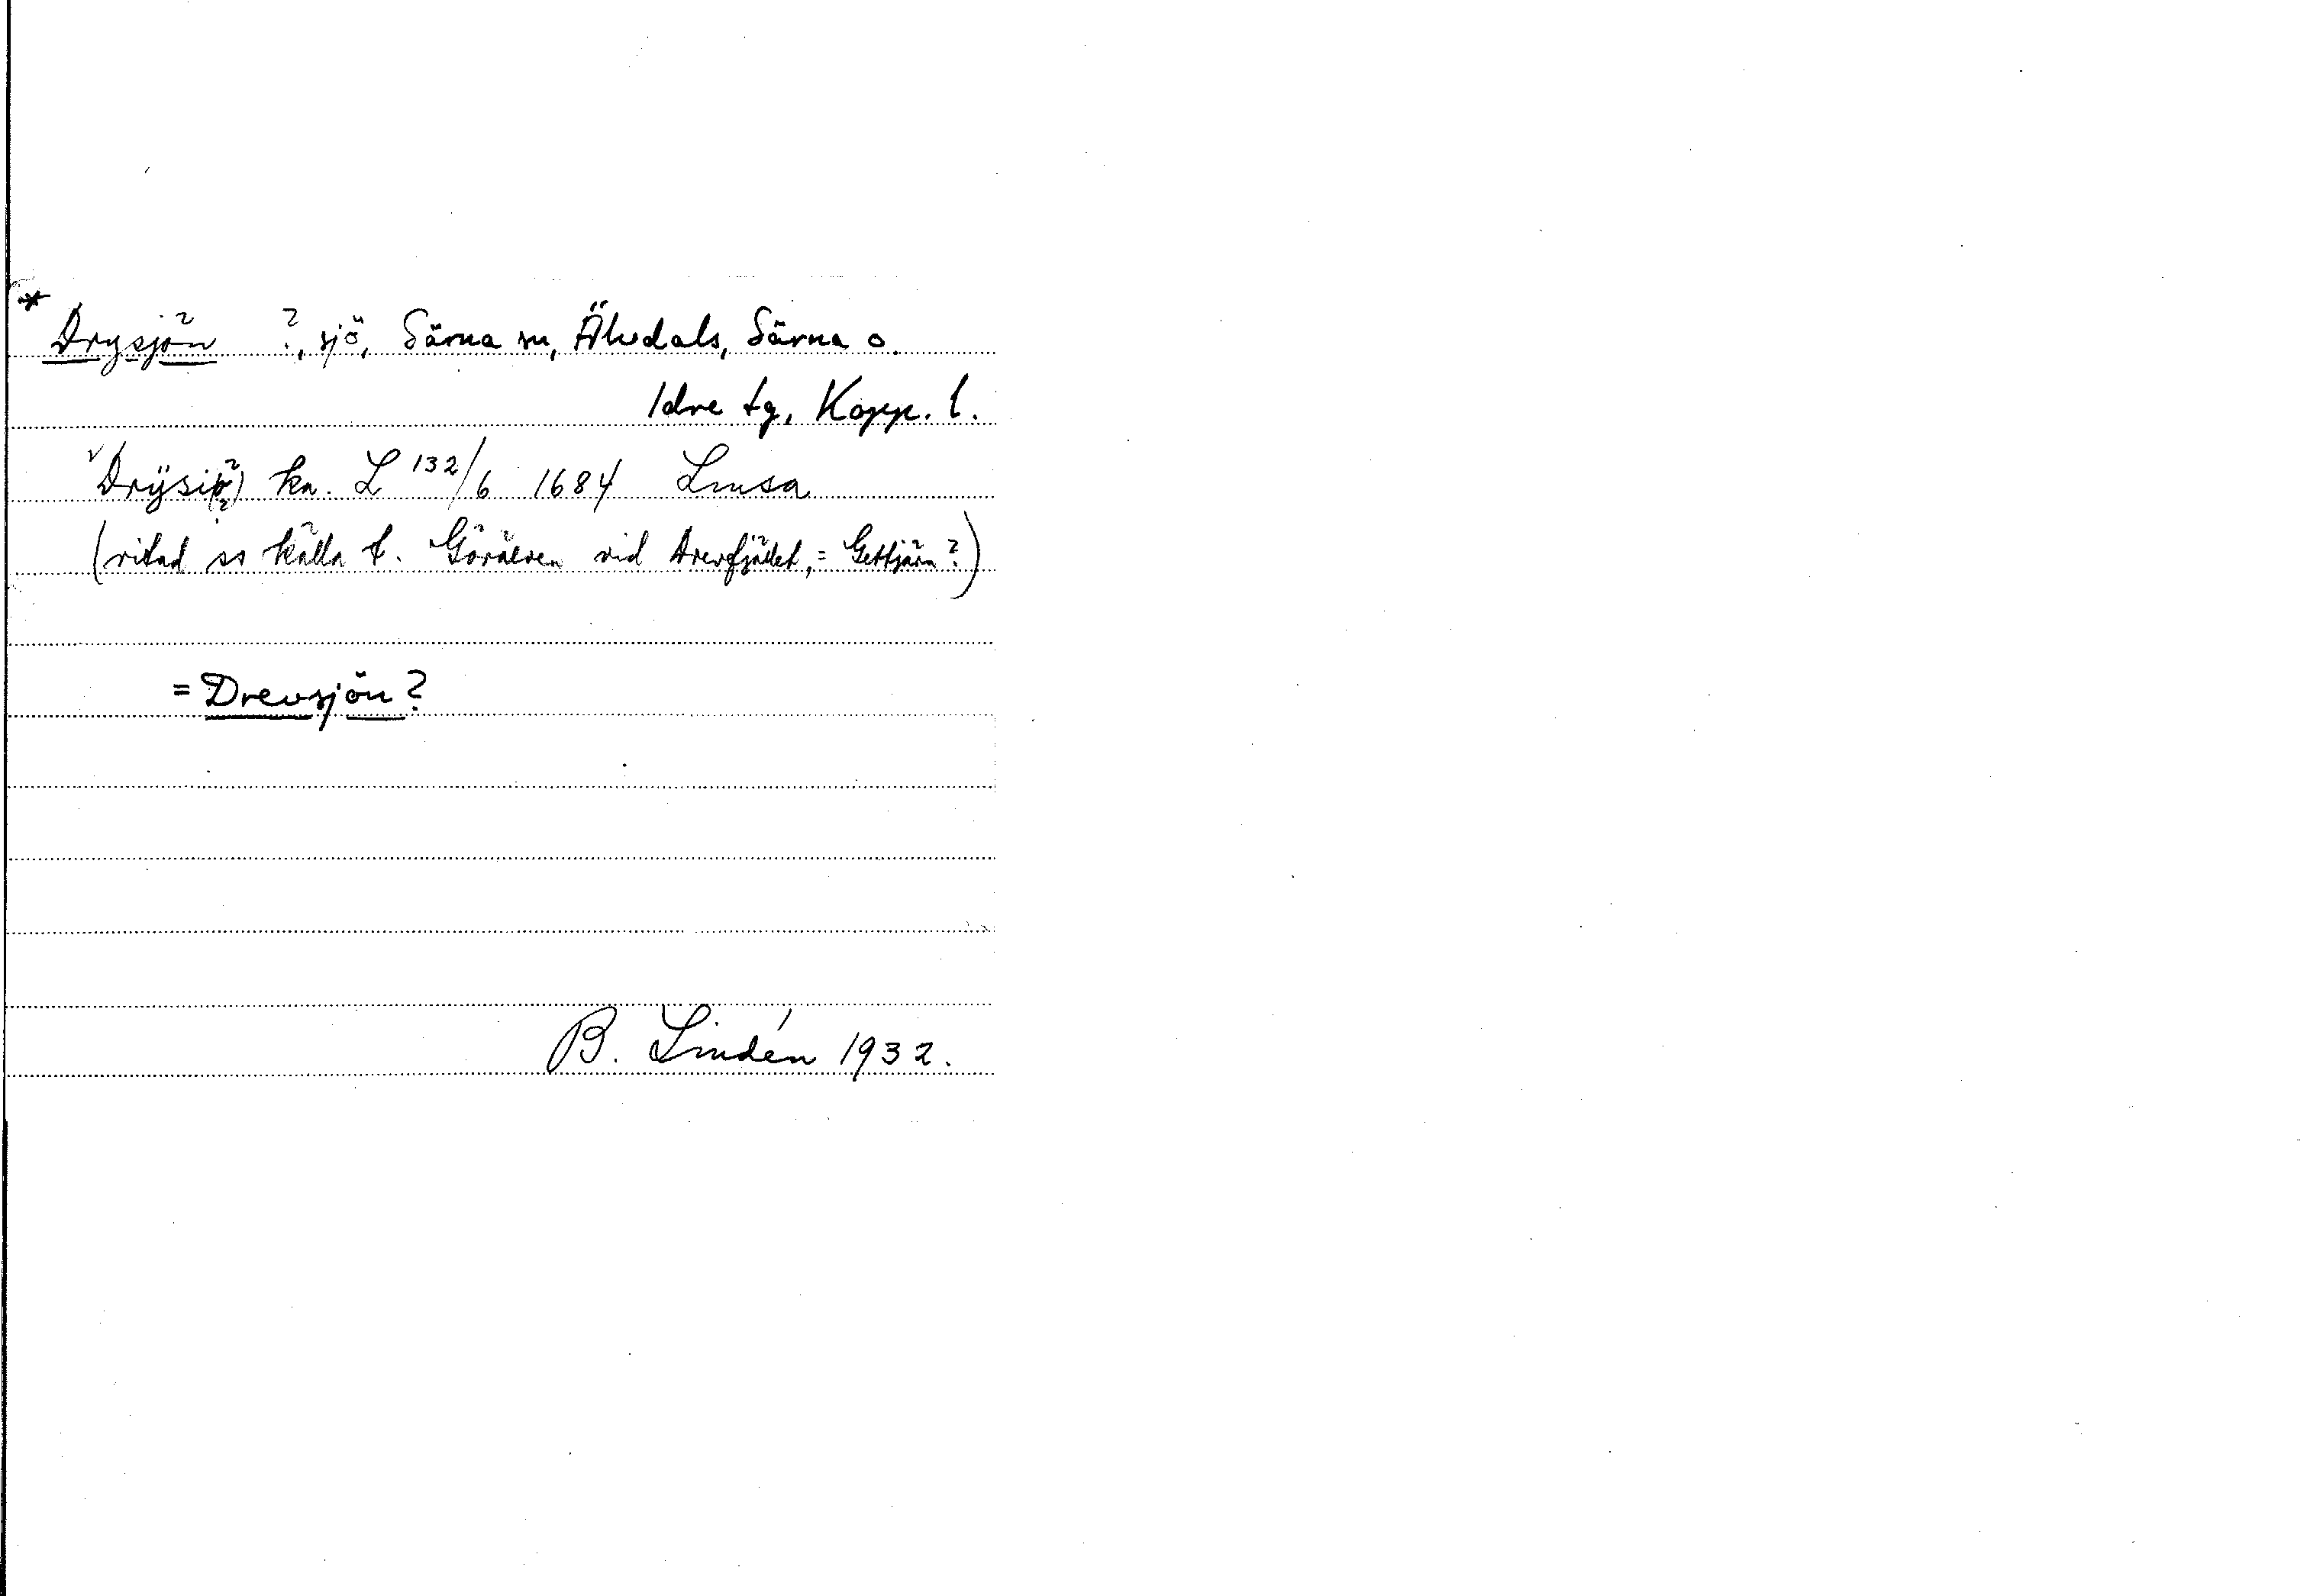 * Drysjön ?, sjö, Särna sn, Älvdals, Särna o.
Idre tg, Kopp. l.
Drÿsiö(?) ka. L 132/6 1684 Limsa
(ritad ss källa t. Görälven vid Drevfjället, = Gettjärn?)
= Drevsjön?
B. Lindén 1932.